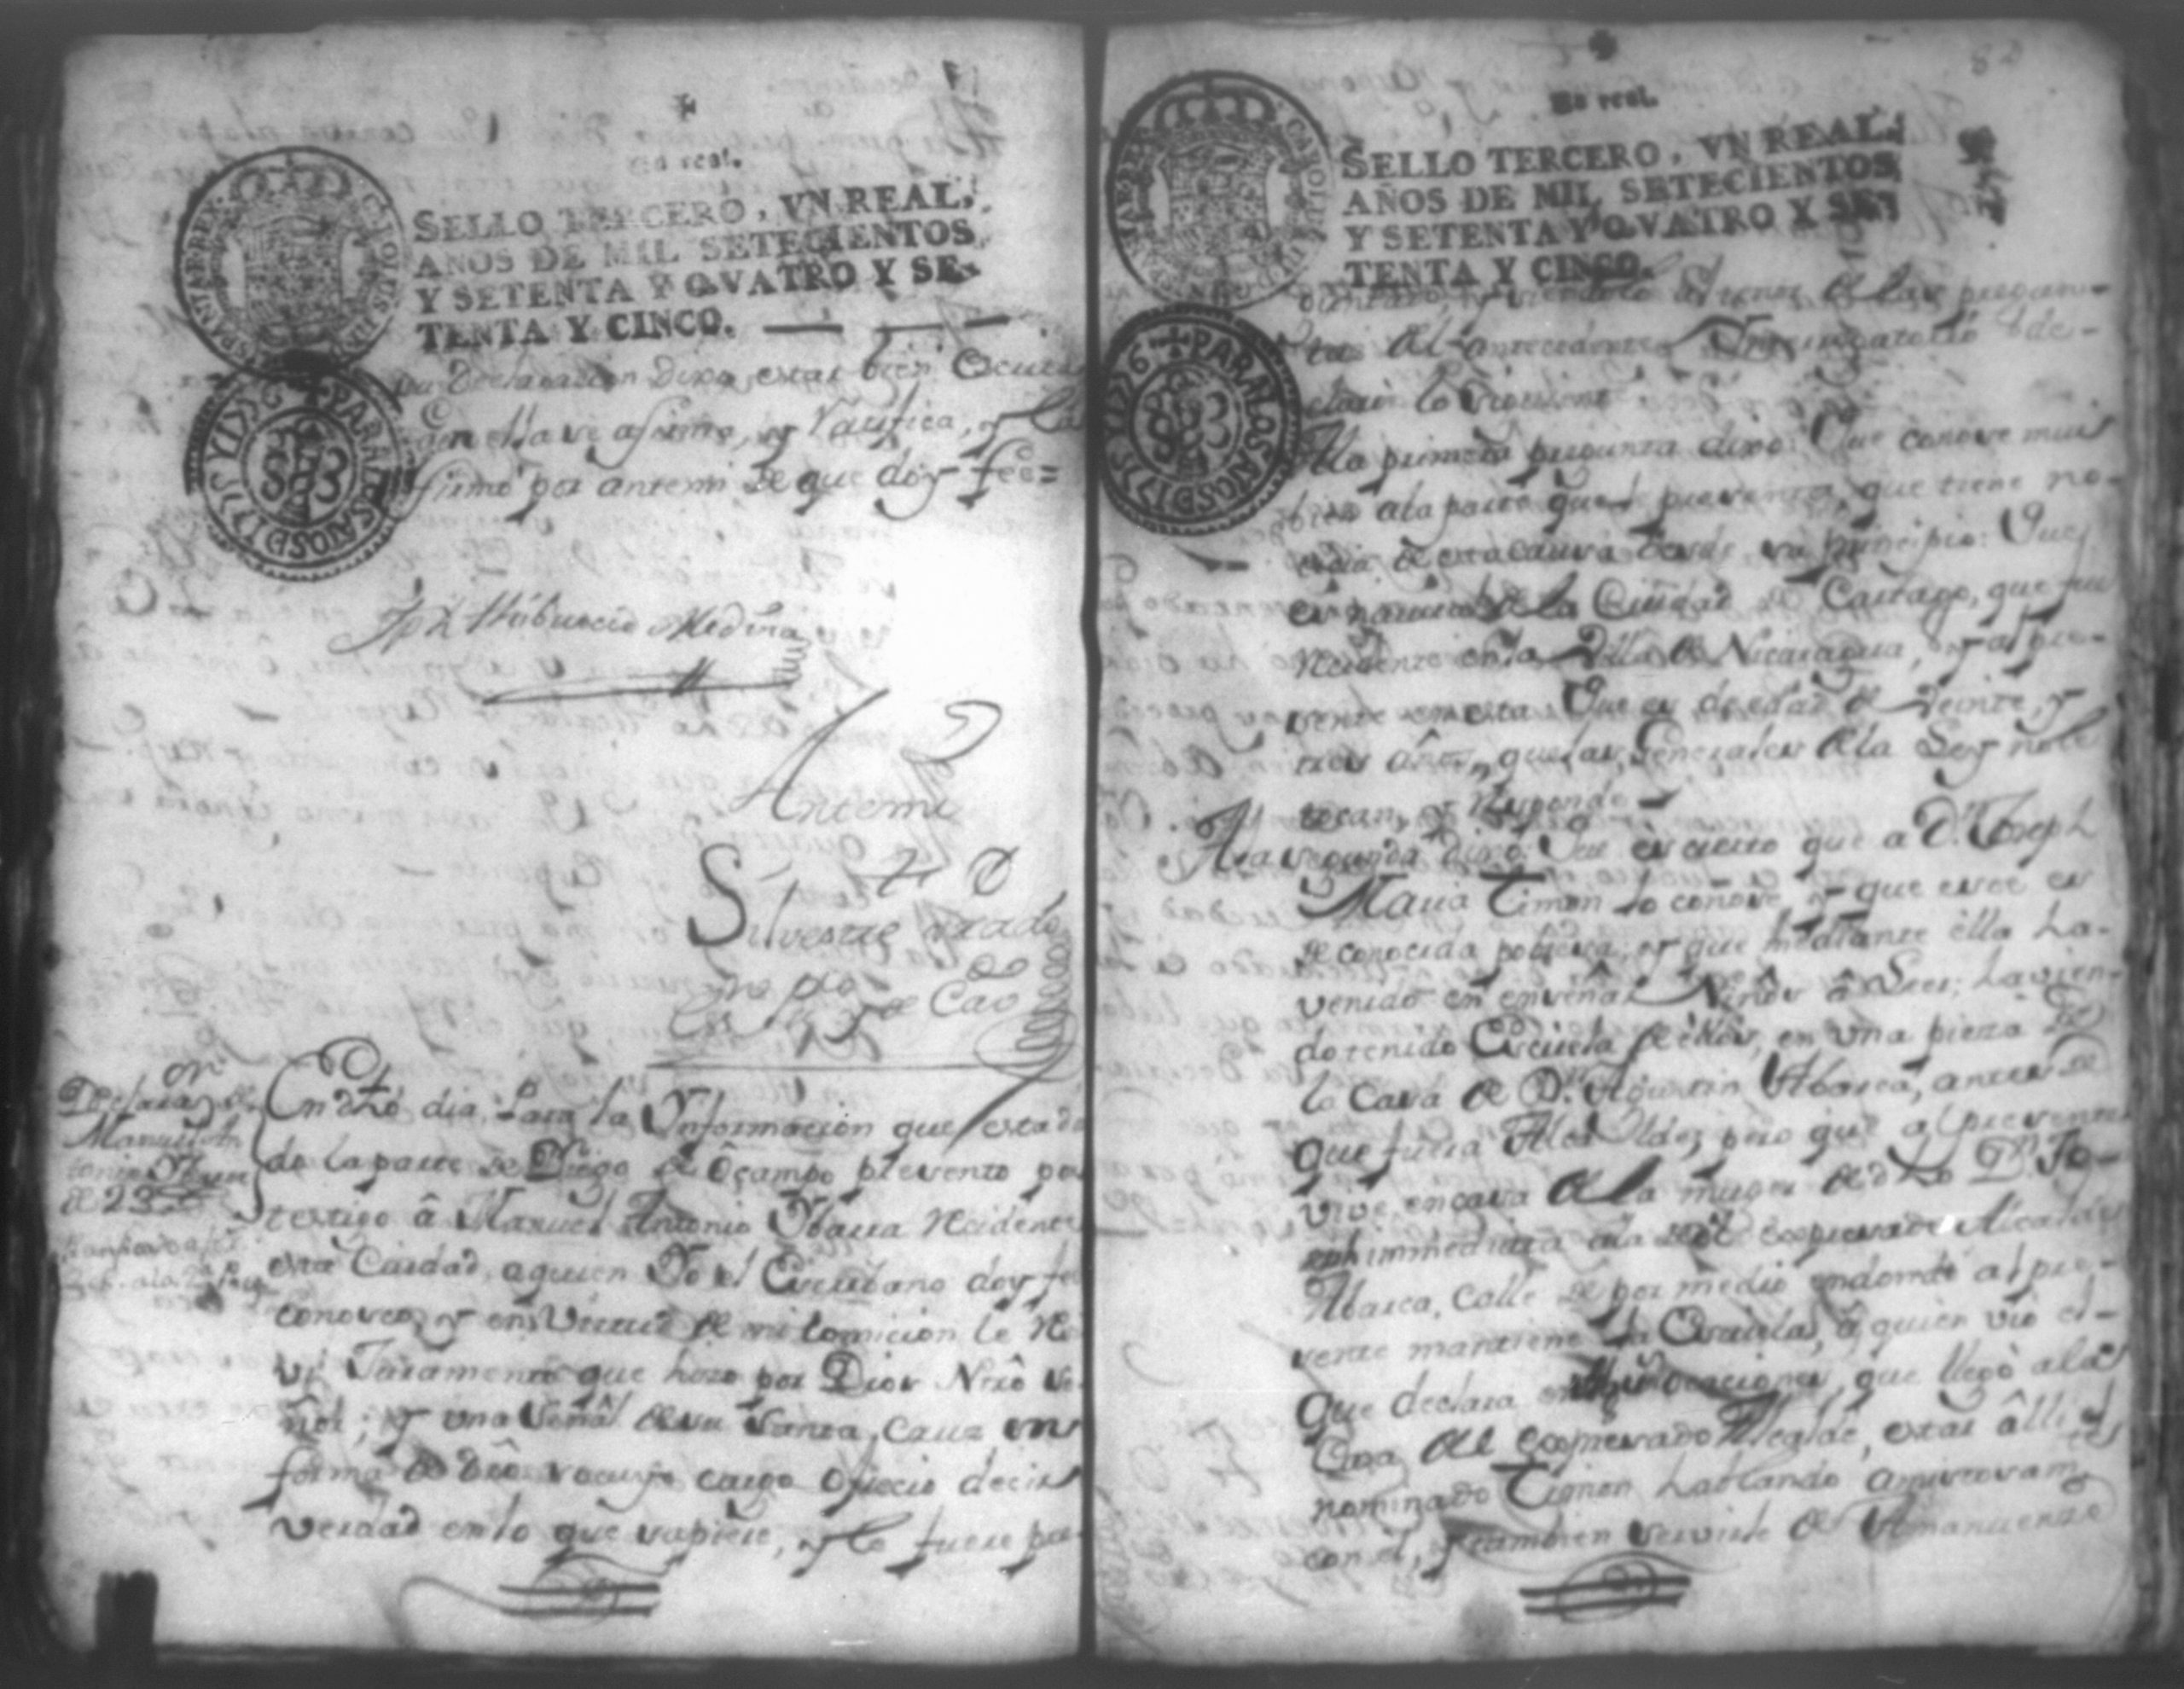 Un real.
SELLO TERCERO, VN REAL,
AÑOS DE MIL SETECIENTOS
Y SETENTA Y QVATRO Y SE-
TENTA Y CINCO.
HISPANIAR REX CAROLUS III D
PARA LOS AÑOS D 1775 Y 1776
su Declaracion dixo estar bien Escrita
en ella se afirma, y ratifica, y la
firmó por antemi de que doy feê=
Medina
Antemi
Silvestre
Declaraz.on de
Manuel An
tonio Ybarra
de 23
En dho dia, Para la Ynformacion que esta da
do la parte de Diego de Ocampo presento por
testigo â Manuel Antonio Ybarra Recidente
esta Ciudad, aquien Yo el Escribano doy fee
conosco, y en virtud de mi comicion le Re
vi Juramento que hizo por Dios Nrô Se
ñor; y una señal de su Santa Cruz en
forma de drô vo cuyo cargo ofrecio decir
verdad en lo que supiere, y le fuere pre
Un real.
SELLO TERCERO, VN REAL,
AÑOS DE MIL SETECIENTOS
Y SETENTA Y QVATRO Y SE-
TENTA Y CINCO.
HISPANIAR REX CAROLUS III D
PARA LOS AÑOS D 1775 Y 1776
guntado, y siendolo al tenor de las pregun-
tas del antecedente Ynterrogatorio de-
claró lo siguiente
A la primera pregunta dixo: Que conose mui
bien ala parte que le presenta, que tiene no-
ticia de esta causa desde su principio: Que
es natural de la Ciudad de Cartago, que fue
Recidente en la Villa de Nicaragua, y al pre-
sente en esta Que es de edad de veinte, y
tres años, que las Generales de la Ley no le
tocan, y Responde
A la segunda dixo: Que es cierto que a Dn. Joseph
Maria Timon lo conose, y que este es
de conocida pobresa, y que mediante ella ha-
venido en enseñar Niños â Leer; havien-
do tenido Escuela de ellos, en una piesa de
la Casa de Dn. Agustin Abarca, antes de
que fuera Alcalde, pero que al presente
vive en casa de la muger de dho Dn. Jo-
seph immediata ala del expresado Alcalde
Abarca, Calle de por medio endonde al pre-
sente mantiene la Escuela, â quien vio el
que declara en ocaciones, que llegó ala
Casa del expresado Alcalde, estar âlli el
nominado Timon hablando amistosam.te
con el, y tambien servirle de Amanuense